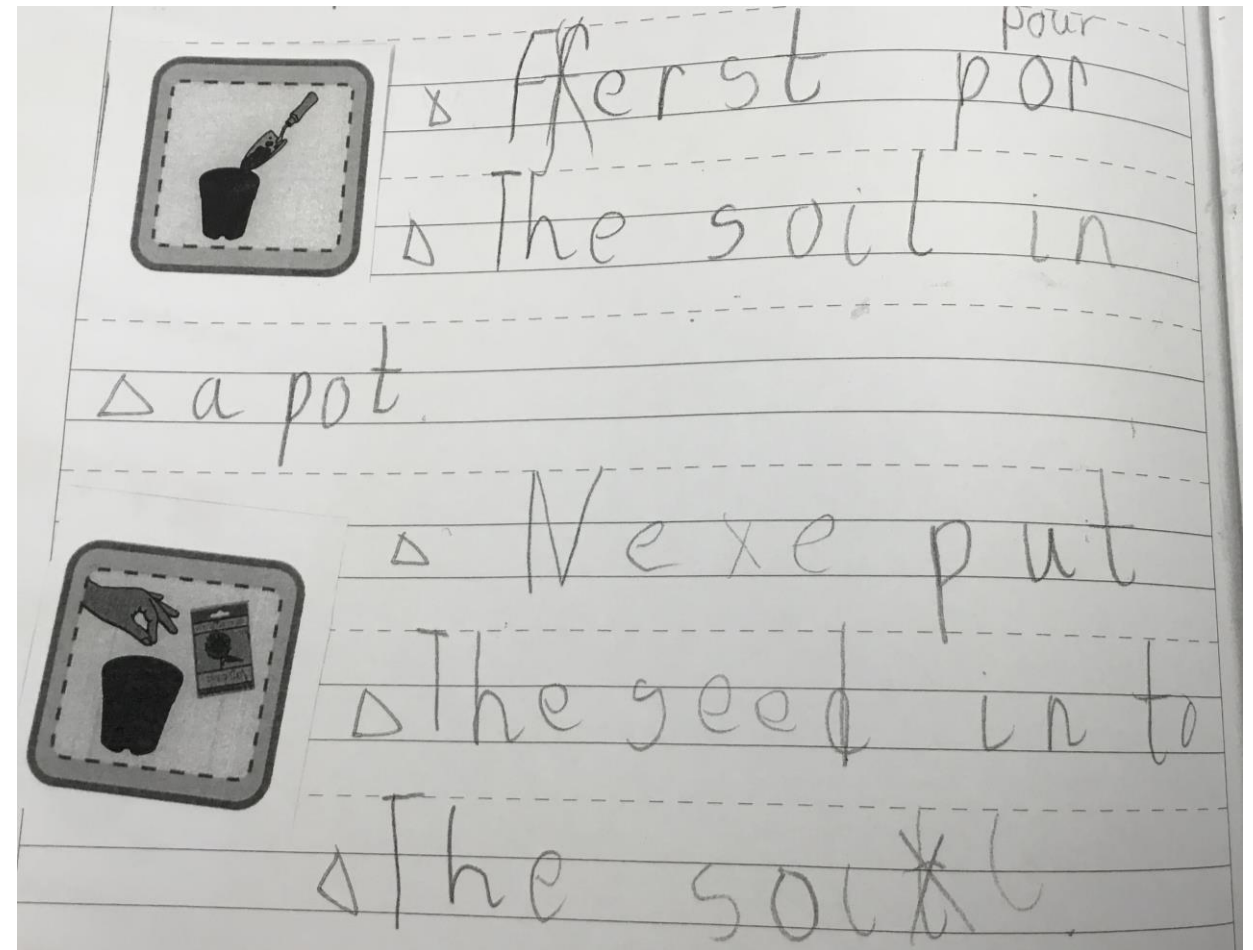 pour
Fferst por
The soil in
a pot.
Nexe put
The seed in to
The soil.